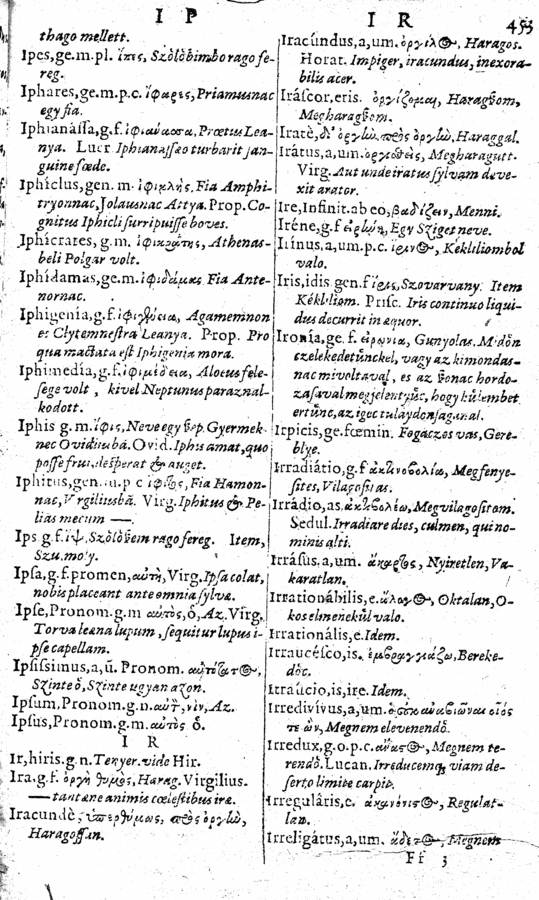 I P
thago mellett.
Ipes, ge.m.pl. ἶπες, Szólóbimbo rago fe-
reg.
Iphares, ge.m.p.c. ἴφαρες, Priamusnac
egy fia.
Iphianássa, g.f. ἰφιάνασσα, Prœtus Lea-
nya. Lucr. Iphianassæo turbarit san-
guine fœde.
Iphíclus, gen. m. ἰφικλής. Fia Amphi-
tryonnac, Jolausnac Attya. Prop. Co-
gnitus Iphicli surripuisse boves.
Iphicrates, g. m. ἰφικράτης, Athenas-
beli Polgar volt.
Iphídamas, ge.m. ἰφιδάμας Fia Ante-
nornac.
Iphigenía, g.f. ἰφιγένεια, Agamemnon
es Clytemnestra Leanya. Prop. Pro
qua mactata est Iphigenia mora.
Iphimedía, g.f. ἰφιμέδεια, Aloeus fele-
sege volt, kivel Neptunus paraznal-
kodott.
Iphis g.m. ἶφις, Neve egy Gyermek-
nec Ovid. Iphis amat, quo
posse frui, desperat & auget.
Iphitus, gen. m. p. c ἴφιτος, Fia Hamon-
nac, Virgiliusbā. Virg. Iphitus & Pe-
lias mecum —.
Ips g.f. ἴψ, rago fereg. Item,
Szu.
Ipsa, g. f. promen, αὐτὴ, Virg. Ipsa colat,
nobis placeant ante omnia sylvæ.
Ipse, Pronom. g.m αὐτὸς, ὁ, Az. Virg.
Torva leæna lupum, sequitur lupus i-
pse capellam.
Ipsissimus, a, ū. Pronom. αὐτότατ⊙,
Szinte ó, Szinte ugyan azon.
Ipsum, Pronom. g.n. αὐτὸ, νὶν, Az.
Ipsus, Pronom. g.m. αὐτὸς ὁ.
I R
Ir, hiris. g.n. Tenyer. vide Hir.
Ira. g.f. ὀργὴ θυμὸς, Harag. Virgilius.
— tantæne animis cœlestibus iræ.
Iracundè, ὑπερθύμως, πρὸς ὀργὼ,
Haragossan.
I R 453
Iracúndus, a, um. ὀργίλ⊙, Haragos.
Horat. Impiger, iracundus, inexora-
bilis acer.
Iráscor, eris. ὀργίζομαι,
Iratè, δι' ὀργὼ. πρὸς ὀργὼ, Haraggal.
Irátus, a, um. ὀργισθεὶς, Megharagutt.
Virg. Aut unde iratus sylvam deve-
xit arator.
Ire, Infinit. ab eo, βαδίζειν, Menni.
Iréne, g.f εἰρήνη, Egy Sziget neve.
Irínus, a, um. p.c. ἴριν⊙, Kékliliombol
valo.
Iris, idis. gen. f ἶρις, Szovarvany. Item
Kék liliom. Prisc. Iris continuo liqui-
dus decurrit in æquor.
Ironía, ge. f. εἰρωνία, Gunyolas. Midón
czelekedetúnckel, vagy az kimondas-
nac mivoltaval, es az hordo-
zasaval megjelentyúc, hogy kúlembet
ertúnc, az igec tulaydonsaganal.
Irpicis, ge. fœmin. Fogaczos vas, Gere-
blye.
Irradiátio, g.f ἀκτινοβολία, Megfenye-
sites, Vilagositas.
Irrádio, as. ἀκτινοβολέω, Megvilagositom.
Sedul. Irradiare dies, culmen, qui no-
minis alti.
Irrásus, a, um. ἄκαρτος, Nyiretlen, Va-
karatlan.
Irrationábilis, e. ἄλογ⊙, Oktalan, O-
kos elmenekúl valo.
Irrationális, e. Idem.
Irraucésco, is. ἐμβραγχιάζω, Bereke-
dóc.
Irraúcio, is, ire. Idem.
Irredivívus, a, um. οἷός
τε ὢν, Megnem elevenendó.
Irredux, g.o. p.c. Megnem te-
rendó. Lucan. Irreducemq; viam de-
serto limite carpit.
Irreguláris, e. ἀκανόνις⊙, Regulat-
lan.
Irreligátus, a, um. ἄδετ⊙, Megnem
Ff 3